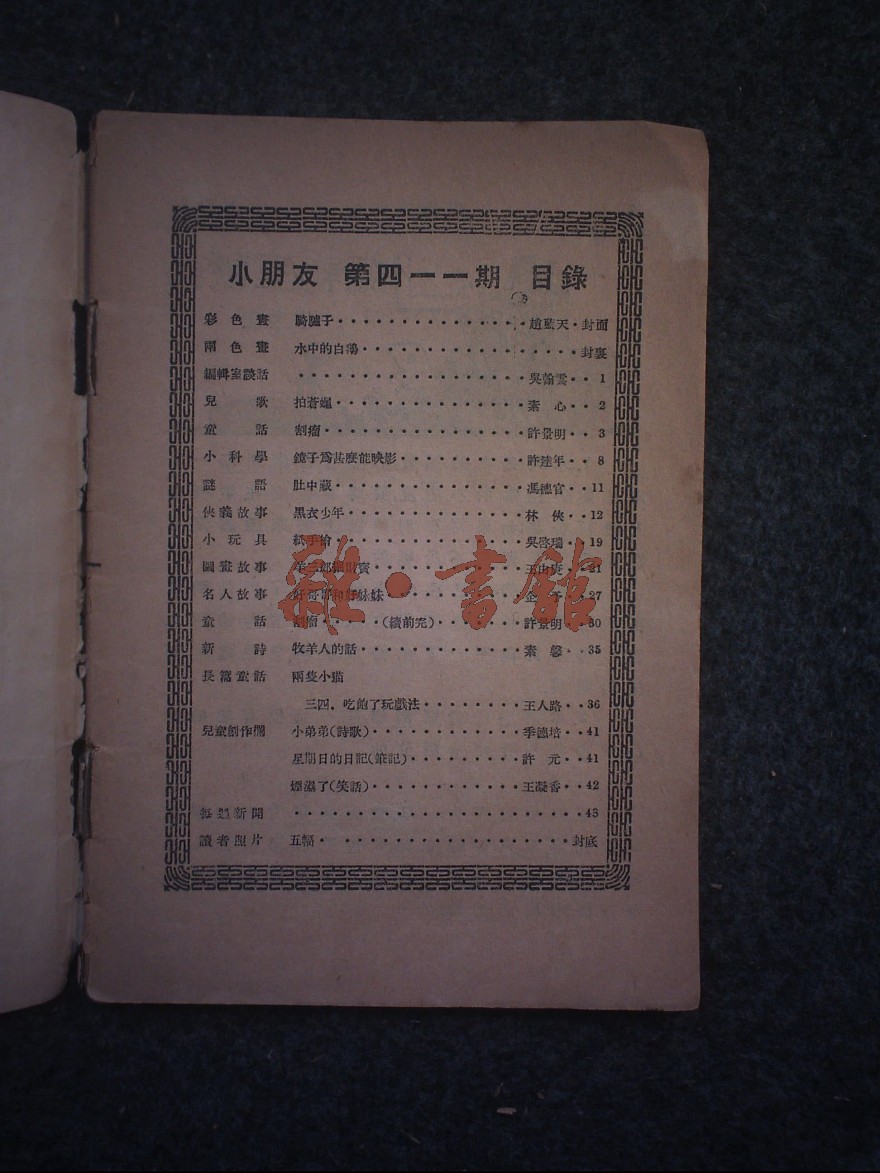 小朋友 第四一一期 目錄
彩色畫 騎驢子 趙藍天 封面
兩色畫 水中的白鵝 封裏
編輯室談話 吳翰雲 1
兒歌 拍蒼蠅 素心 2
童話 割瘤 許景明 3
小科學 鏡子爲甚麼能映影 許達年 8
謎語 肚中藏 馮德官 11
俠義故事 黑衣少年 林俠 12
小玩具 紙手槍 吳啓瑞 19
圖畫故事 21
名人故事 妹妹 27
童話 割瘤 (續前完) 許景明 30
新詩 牧羊人的話 素馨 35
長篇童話 兩隻小貓
三四.吃飽了玩戲法 王人路 36
兒童創作欄 小弟弟(詩歌) 季德培 41
星期日的日記(筆記) 許元 41
煙濕了(笑話) 王凝香 42
每週新聞 43
讀者照片 五幅 封底
雜·書館